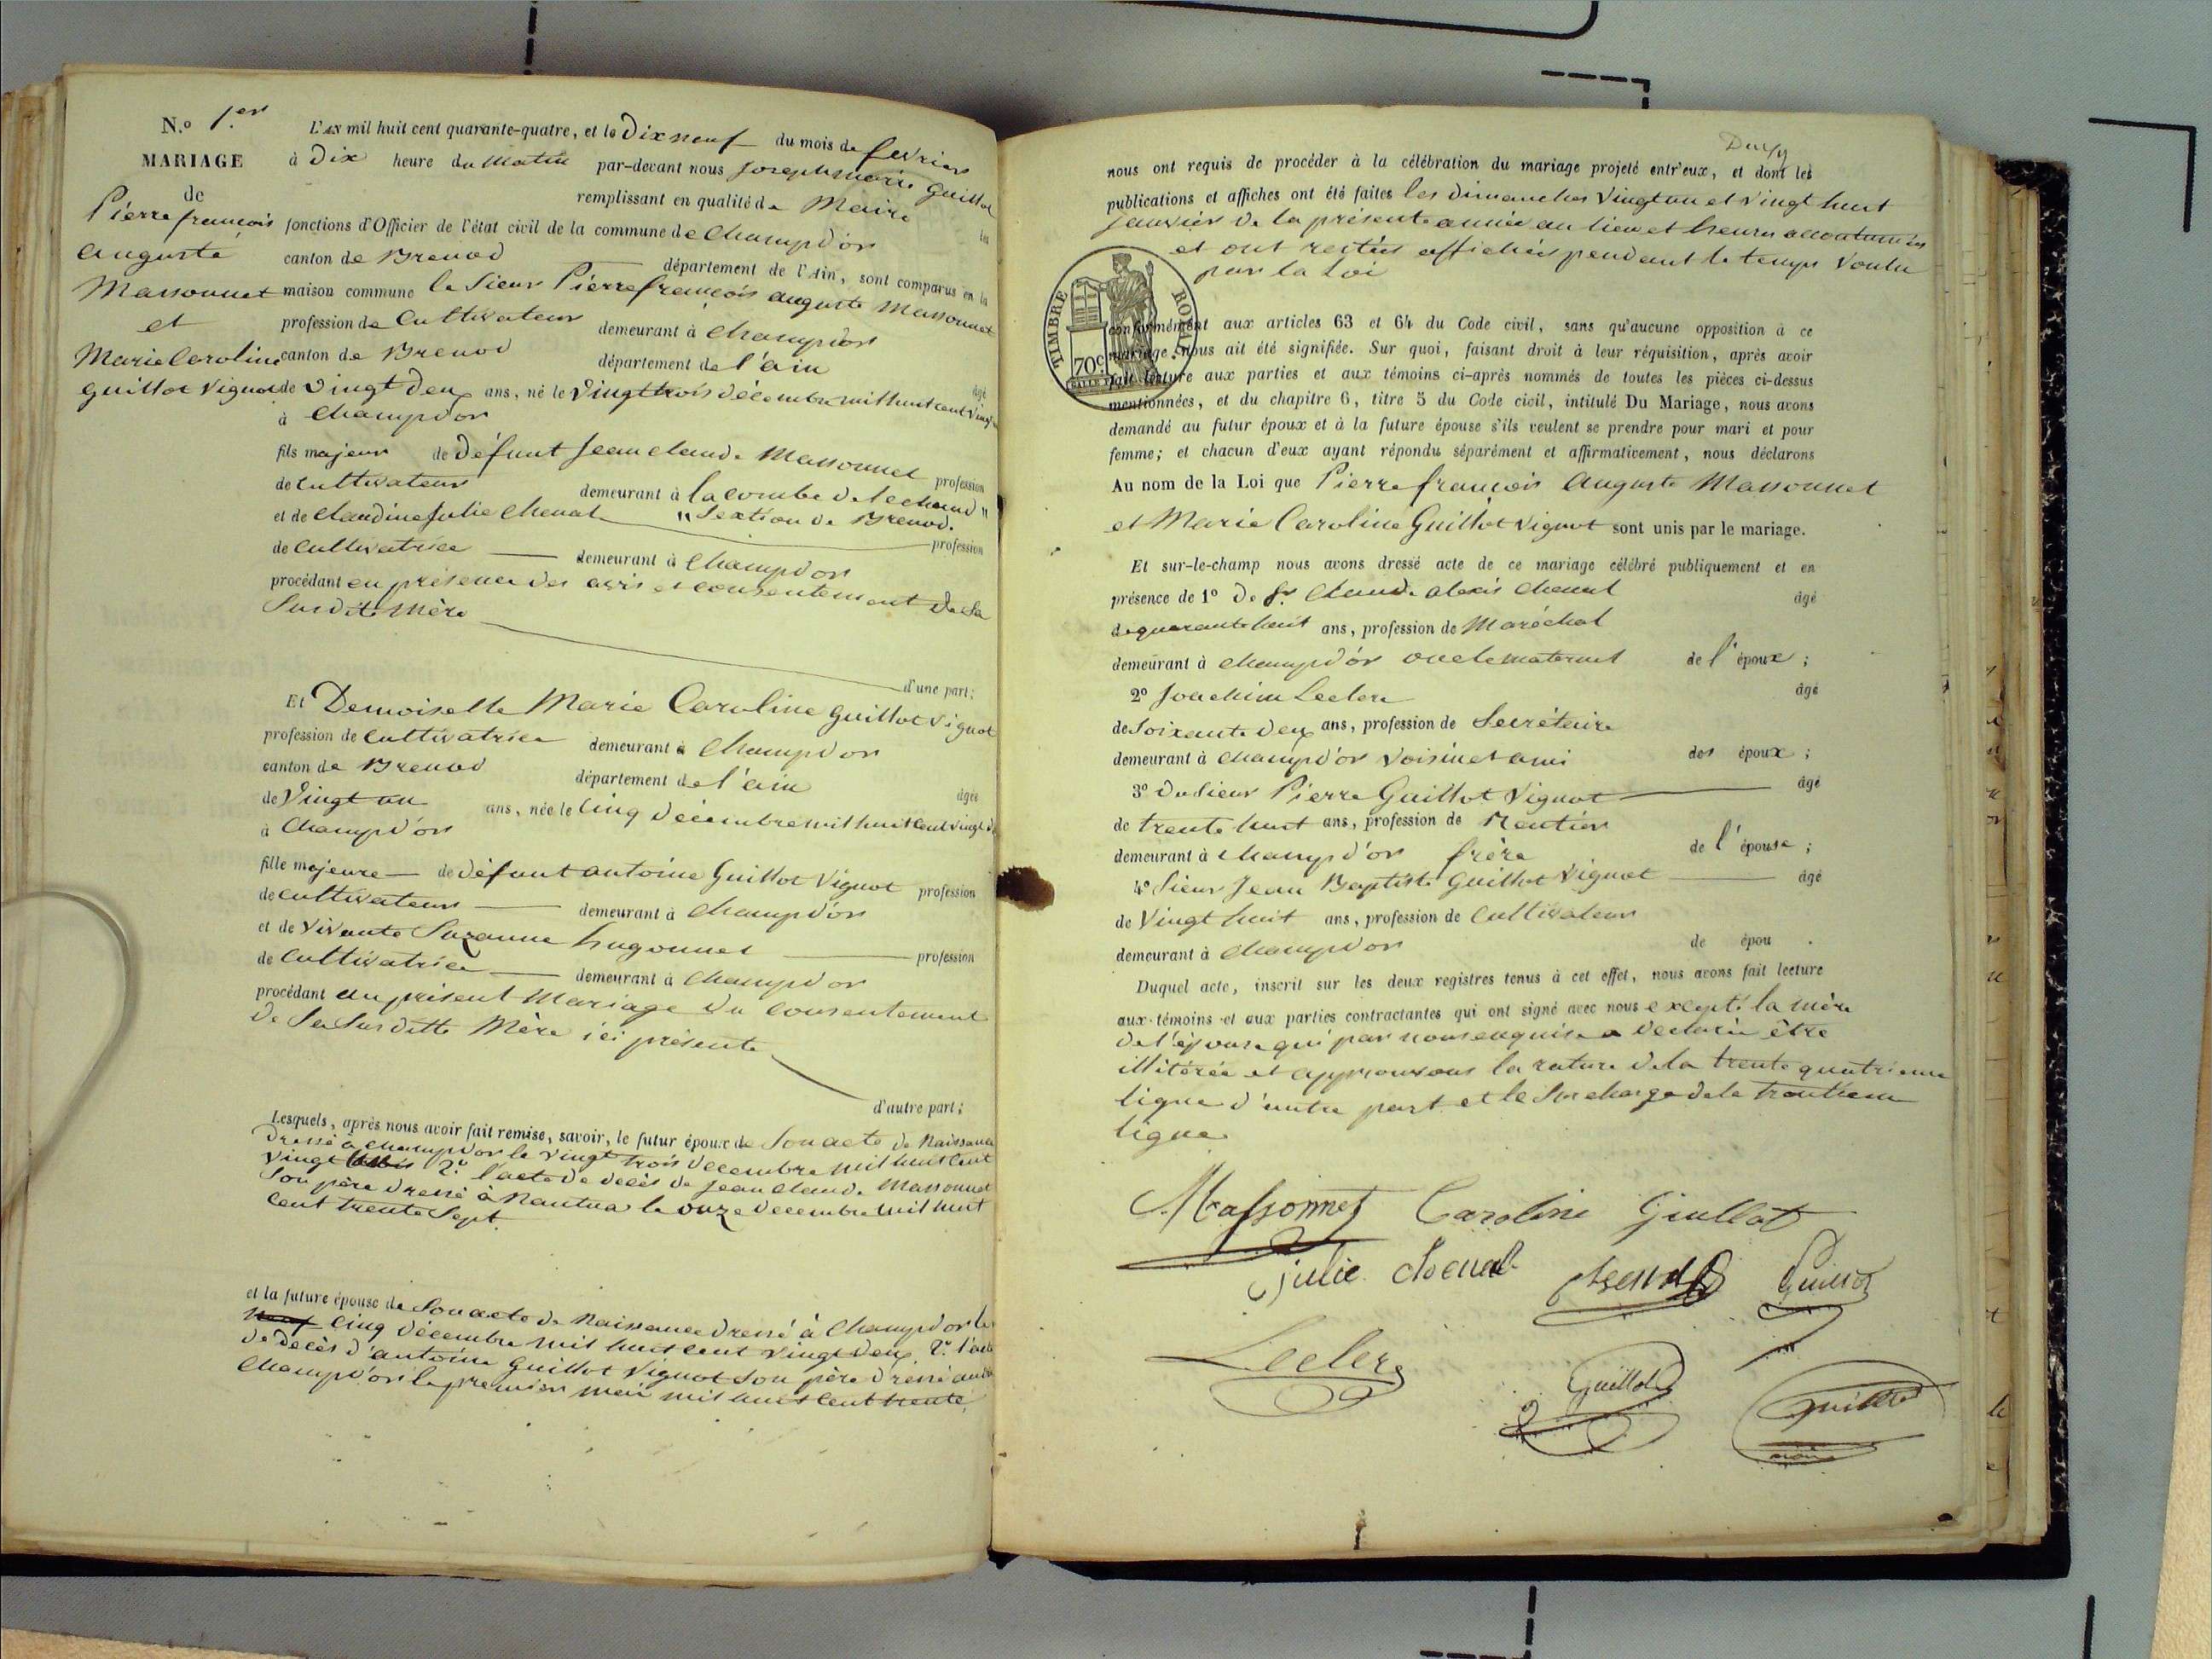 N.o 1.er
MARIAGE
de
Pierre françois
auguste
Massonnet
et
Marie Caroline
guillot Vignot
L'AN mil huit cent quarante-quatre, et le Dix neuf du mois de fevrier
à Dix heure du Matin par-devant nous Joseph marie Guillot
remplissant en qualité de Maire les
fonctions d'Officier de l'état civil de la commune de Champd'or
canton de Brenod département de l'Ain, sont comparus en la
maison commune le Sieur Pierre françois auguste Massonnet
profession de Cultivateur demeurant à Champdor
canton de Brenod département de l'ain âgé
de vingt deux ans, né le Vingt trois décembre mil huit cent vingt
à Champd'or
fils majeur de Défunt Jean claude Massonnet profession
de Cultivateur demeurant à la combe de lechaud
et de Claudine Julie Chenal "Sextion de Brenod. profession
de Cultivatrice demeurant à Champdor
procédant en présence des avis et consentement de Sa
Susdite Mère
d'une part;
Et Demoiselle Marie Caroline guillot Vignot
profession de Cultivatrice demeurant à Champdor
canton de Brenod département de l'ain âgée
de Vingt un ans, née le Cinq Décembre mil huit cent vingt d
à Champd'or
fille majeure de défunt antoine Guillot Vignot profession
de cultivateur demeurant à Champd'or
et de Vivante Suzanne hugonnet profession
de Cultivatrice demeurant à Champdor
procédant au présent Mariage du Consentement
De Sa Susditte Mère ici présente
d'autre part;
Lesquels, après nous avoir fait remise, savoir, le futur époux de Son acte de Naissance
Dressé à Champdor le vingt trois decembre mil huit cent
vingt 2.o l'acte de décès de Jean claude Massonnet
Son père dressé à Nantua le onze decembre mil huit
cent trente Sept.
et la future épouse de Son acte de Naissance dressé à Champdor le
neuf Cinq décembre mil huit cent vingt deux 2.o l'acte
de decès d'antoine Guillot Vignot Son père dressé audit
Champd'or le premier mai mil huit cent trente
nous ont requis de procéder à la célébration du mariage projeté entr'eux, et dont les
publications et affiches ont été faites les dimanches Vingt un et Vingt huit
Janvier de la présente année au lieu et heures accoutumées
et ont restées affichées pendant le temps Voulu
par la Loi
TIMBRE ROYAL
70c
conformément aux articles 63 et 64 du Code civil, sans qu'aucune opposition à ce
mariage nous ait été signifiée. Sur quoi, faisant droit à leur réquisition, après avoir
fait lecture aux parties et aux témoins ci-après nommés de toutes les pièces ci-dessus
mentionnées, et du chapitre 6, titre 5 du Code civil, intitulé Du Mariage, nous avons
demandé au futur époux et à la future épouse s'ils veulent se prendre pour mari et pour
femme; et chacun d'eux ayant répondu séparément et affirmativement, nous déclarons
Au nom de la Loi que Pierre françois Auguste Massonnet
et Marie Caroline Guillot Vignot sont unis par le mariage.
Et sur-le-champ nous avons dressé acte de ce mariage célébré publiquement et en
présence de 1o De Sr. Claude alexis Chenal âgé
de quarante huit ans, profession de Maréchal
demeurant à Champd'or oncle maternel de l'époux;
2o Joachim Leclerc âgé
de Soixante deux ans, profession de Secrétaire
demeurant à Champd'or Voisin et ami des époux;
3o Du Sieur Pierre Guillot Vignot âgé
de trente huit ans, profession de Rentier
demeurant à Champd'or frère de l'épouse;
4o Sieur Jean Baptiste Guillot Vignot âgé
de Vingt huit ans, profession de Cultivateur
demeurant à Champdor de épou .
Duquel acte, inscrit sur les deux registres tenus à cet effet, nous avons fait lecture
aux témoins et aux parties contractantes qui ont signé avec nous excepté la mère
de l'épouse qui par nous enquise a declarée être
illitérée et approuvons la rature de la trente quatrieme
ligne d'autre part et le Surcharge de la trentieme
ligne
Massonnet Caroline Guillot
julie chenal chenal Guillot
Leclerc
Guillot
Guillot